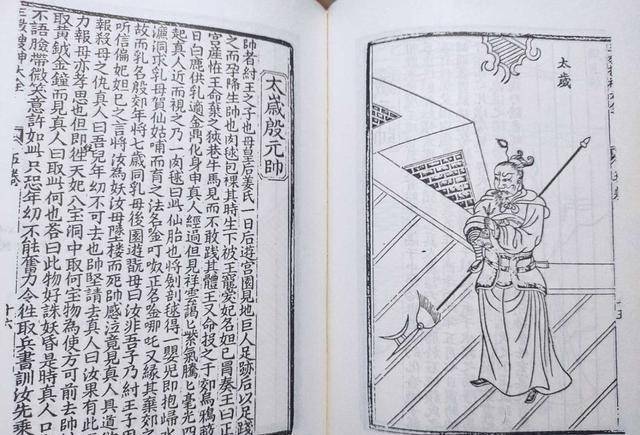 太歲
太歲殷元帥
帥者紂王之子也母皇后姜氏一日后遊宮園見地巨人足跡后以足踐
之而孕降生帥也肉毬包裹其時生下被王寵愛妃名妲己冒奏王曰正
宮產恠王命棄之狹巷牛馬見而不敢踐其體王又命投之于郊烏鴉蔽
日白鹿供乳適金鼎化身申真人經過但見祥雲靄匕紫氣騰匕毫光四
起真人近而視之乃一肉毬曰此仙胎也將劍剖毬得一嬰児即抱歸水
濂洞求乳母賀仙姑哺而育之法名唫叮呶正名唫哪吒又緣其棄郊之
故而乳名殷郊年將七歲同乳母後園遊翫母曰汝非吾子乃紂王子用
聽信偏妃妲已之言將汝為妖汝母墜楼而死帥感泣竟見真人具道
報殺母之仇真人曰吾兒年幼不可去也帥堅請去真人曰汝果有此
力報母亦孝思也但即往天妃八宝洞中取何宝物為使方可前去帥
取黃鉞金鐘而見真人曰取此何也答曰此物好誅妖昏是時真人口
不語臉帶微笑意許如此只恐年幻不能奮力令往取兵書訓汝先乘
三教搜神大全 五卷 十六